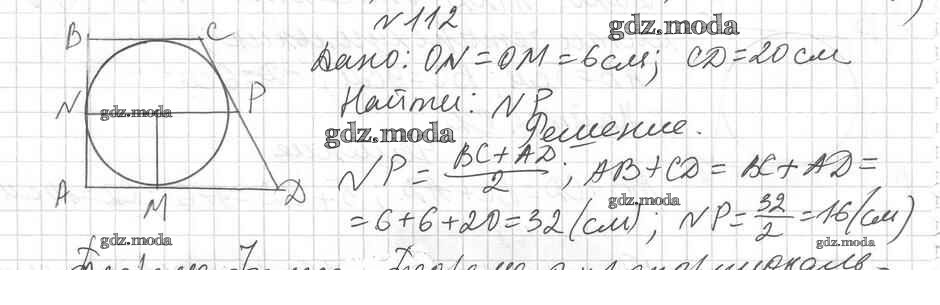 N112
gdz.moda
Дано: ON = OM = 6 см; CD = 20 см
Найти: NP
gdz.moda
Решение.
NP = (BC + AD)/2; AB + CD = BC + AD =
= 6 + 6 + 20 = 32 (см); NP = 32/2 = 16 (см)
gdz.moda
gdz.moda
B C
N gdz.moda P
A M D
gdz.moda